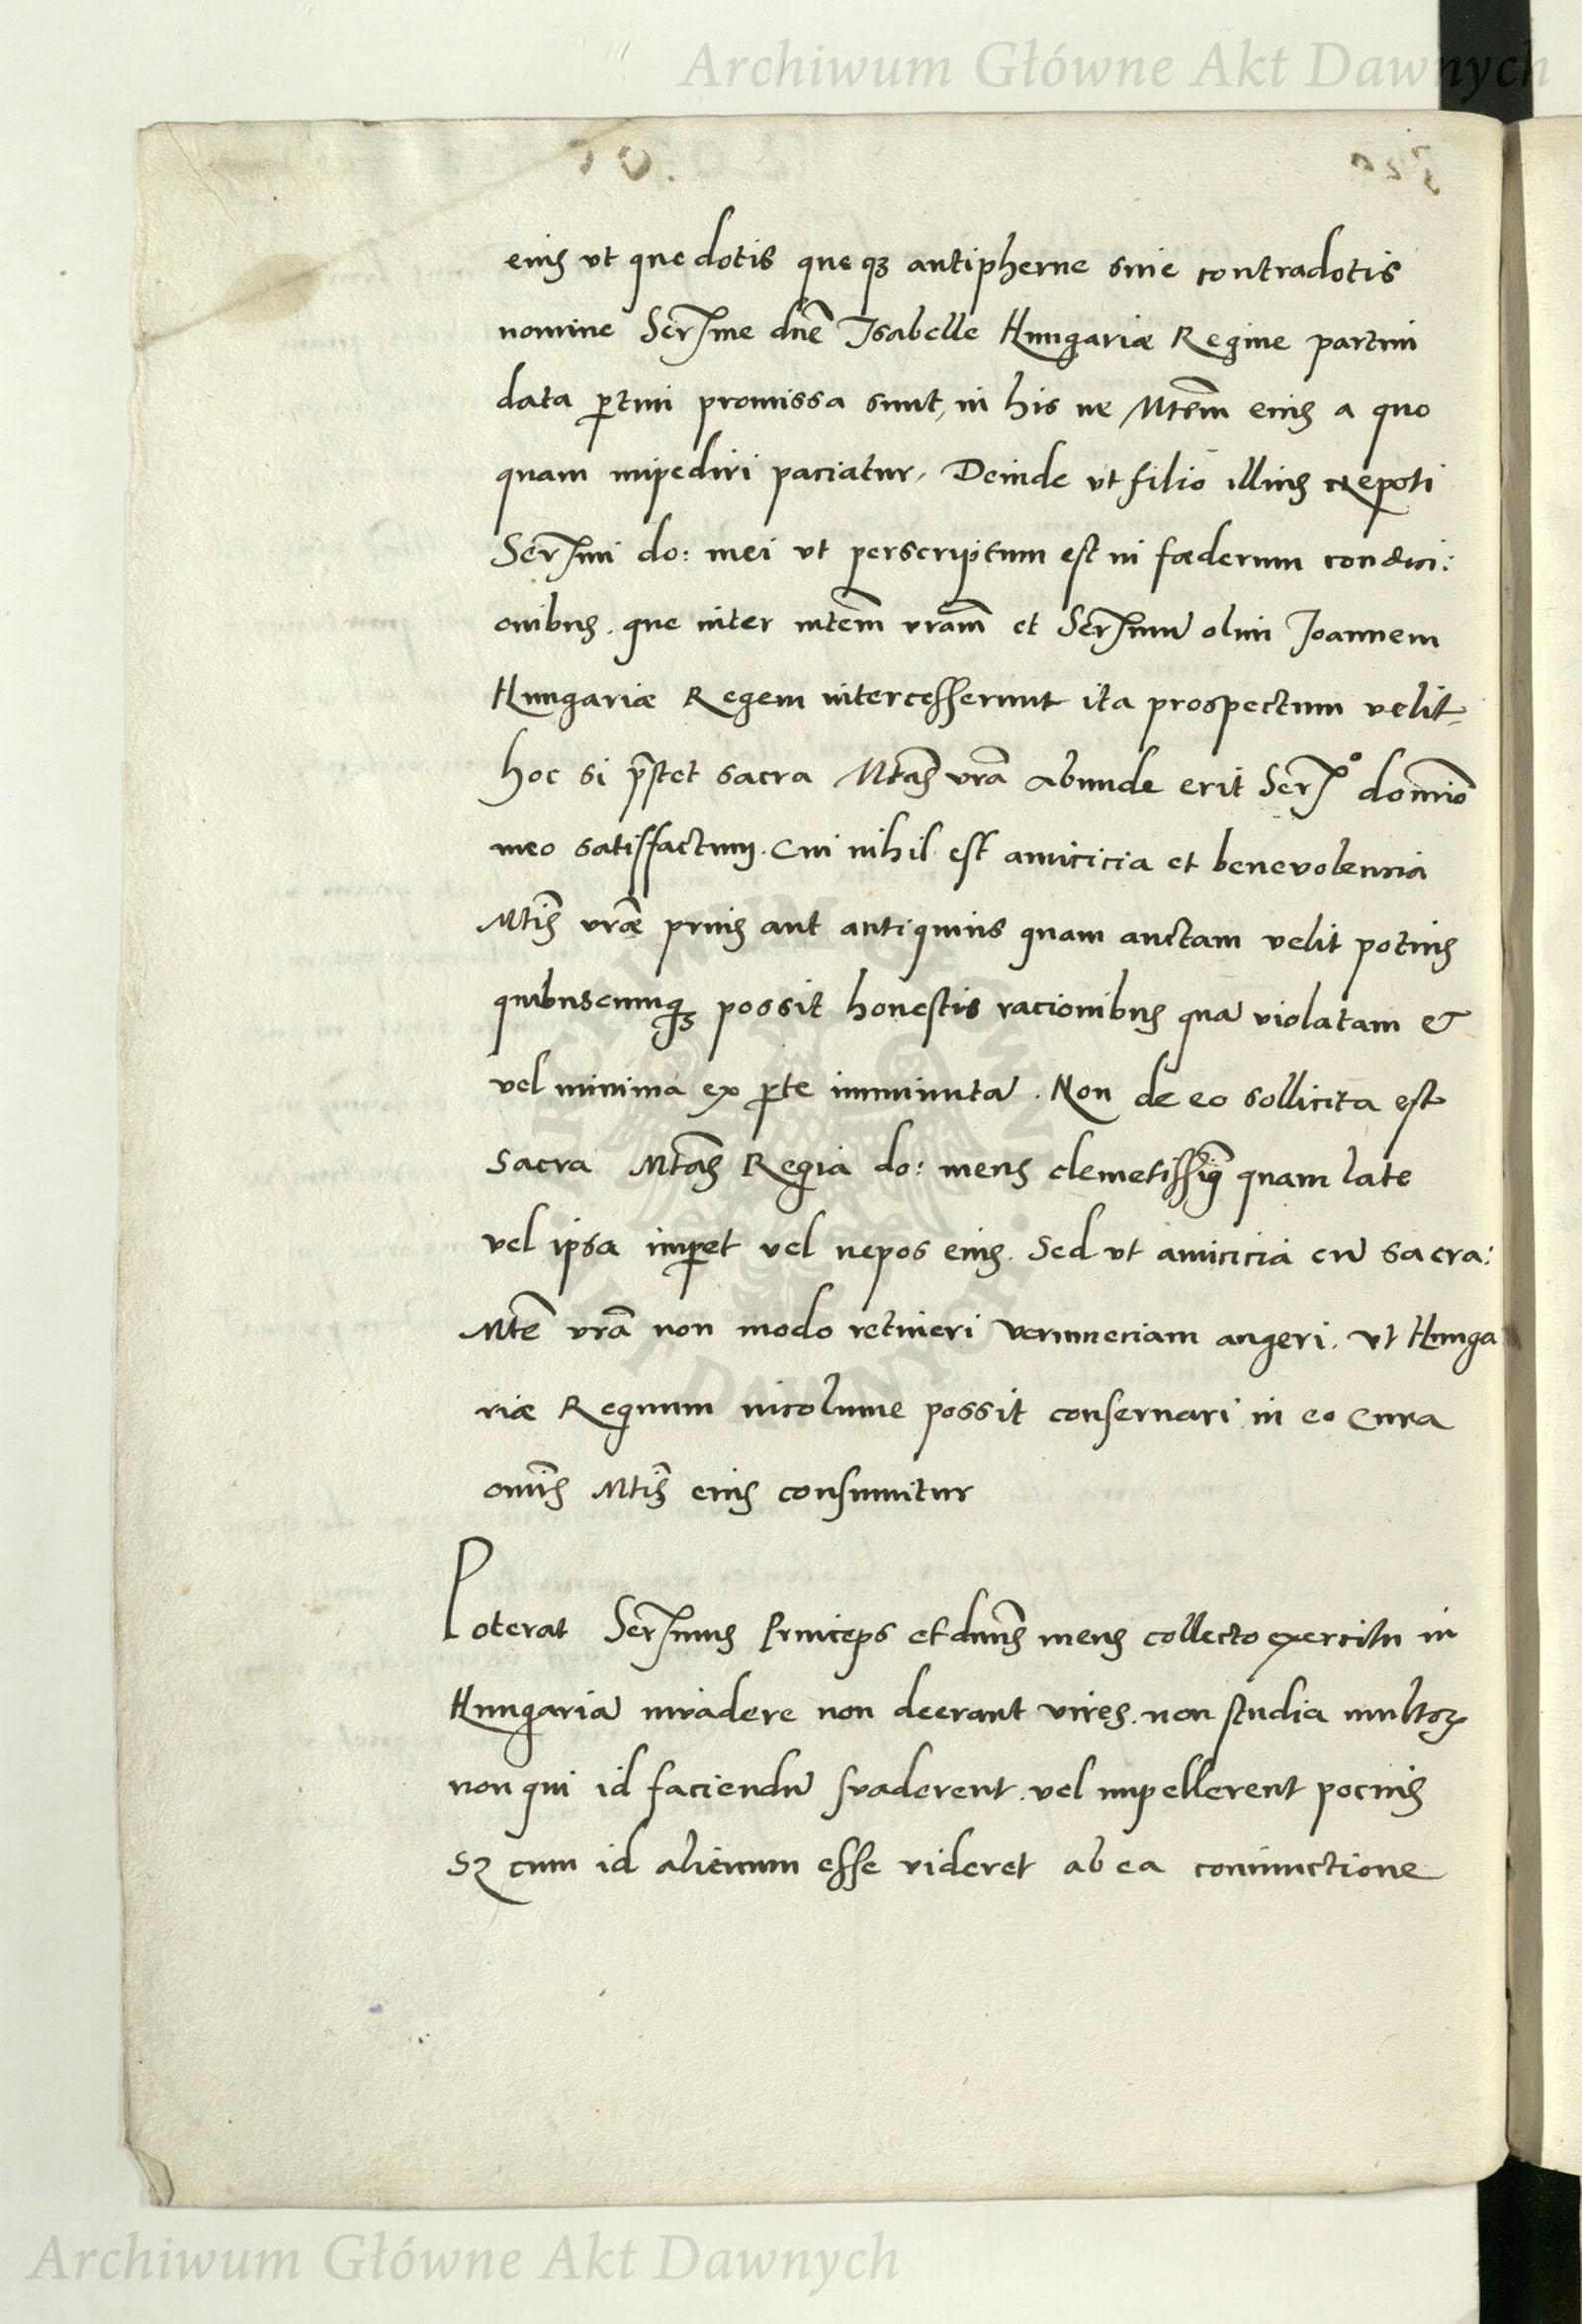 Archiwum Główne Akt Dawnych
eius vt que dotis que qз antipherne siue contradotis
nomine Serme dne Isabelle Hungariæ Regine partim
data ptim promissa sunt, in his ne Mtem eius a quo
quam impediri paciatur, Deinde vt filio illius nepoti
Sermi do: mei vt perscriptum est in fœderum condici:
onibus. que inter mtem vram et Sermu olim Joannem
Hungariæ Regem intercesserunt ita prospectum velit
hoc si pstet sacra Mtas vra abunde erit Sermo domino
meo satisfactum. Cui nihil est amicicia et beneuolencia
Mtis vræ prius aut antiquius quam auctam velit potius
quibuscumqз possit honestis racionibus qua violatam et
vel minima ex pte imminuta. Non de eo sollicita est
Sacra Mtas Regia do: meus clemetissiq quam late
vel ipsa impet vel nepos eius. Sed vt amicicia cu sacra:
Mte vra non modo retineri verumeciam augeri. vt Hunga
riæ Regnum incolume possit conseruari in eo Cura
omis Mtis eius consumitur
Poterat Sermus Princeps et dnus meus collecto exercitu in
Hungaria inuadere non deerant vires. non studia multoꝝ
non qui id faciendu suaderent. vel impellerent pocius
Sꝫ cum id alienum esse videret ab ea coniunctione
Archiwum Główne Akt Dawnych